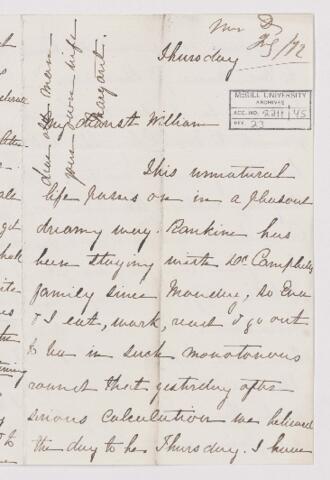 Thursday
McGILL UNIVERSITY
ARCHIVES
ACC. NO. 2211 / 45
REF. 23
dear old man
your own wife
Margaret.
My dearest William
This unnatural
life passes on in a pleasant
dreamy way. Rankine has
been staying with Dr Campbells
family since Monday, so Eva
& I eat, work, read & go out
to tea in such monotonous
round that yesterday after
serious calculation we believed
the day to be Thursday. I have